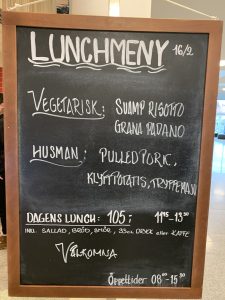 LUNCHMENY 16/2
VEGETARISK: SVAMP RISOTTO
GRANA PADANO
HUSMAN: PULLED PORK,
KLYFTPOTATIS, TRYFFEMAJO
DAGENS LUNCH: 105:- 11:15-13:30
INKL. SALLAD, BRÖD, SMÖR, 33cl DRICK eller KAFFE
VÄLKOMNA
Öppettider 08:00-15:30